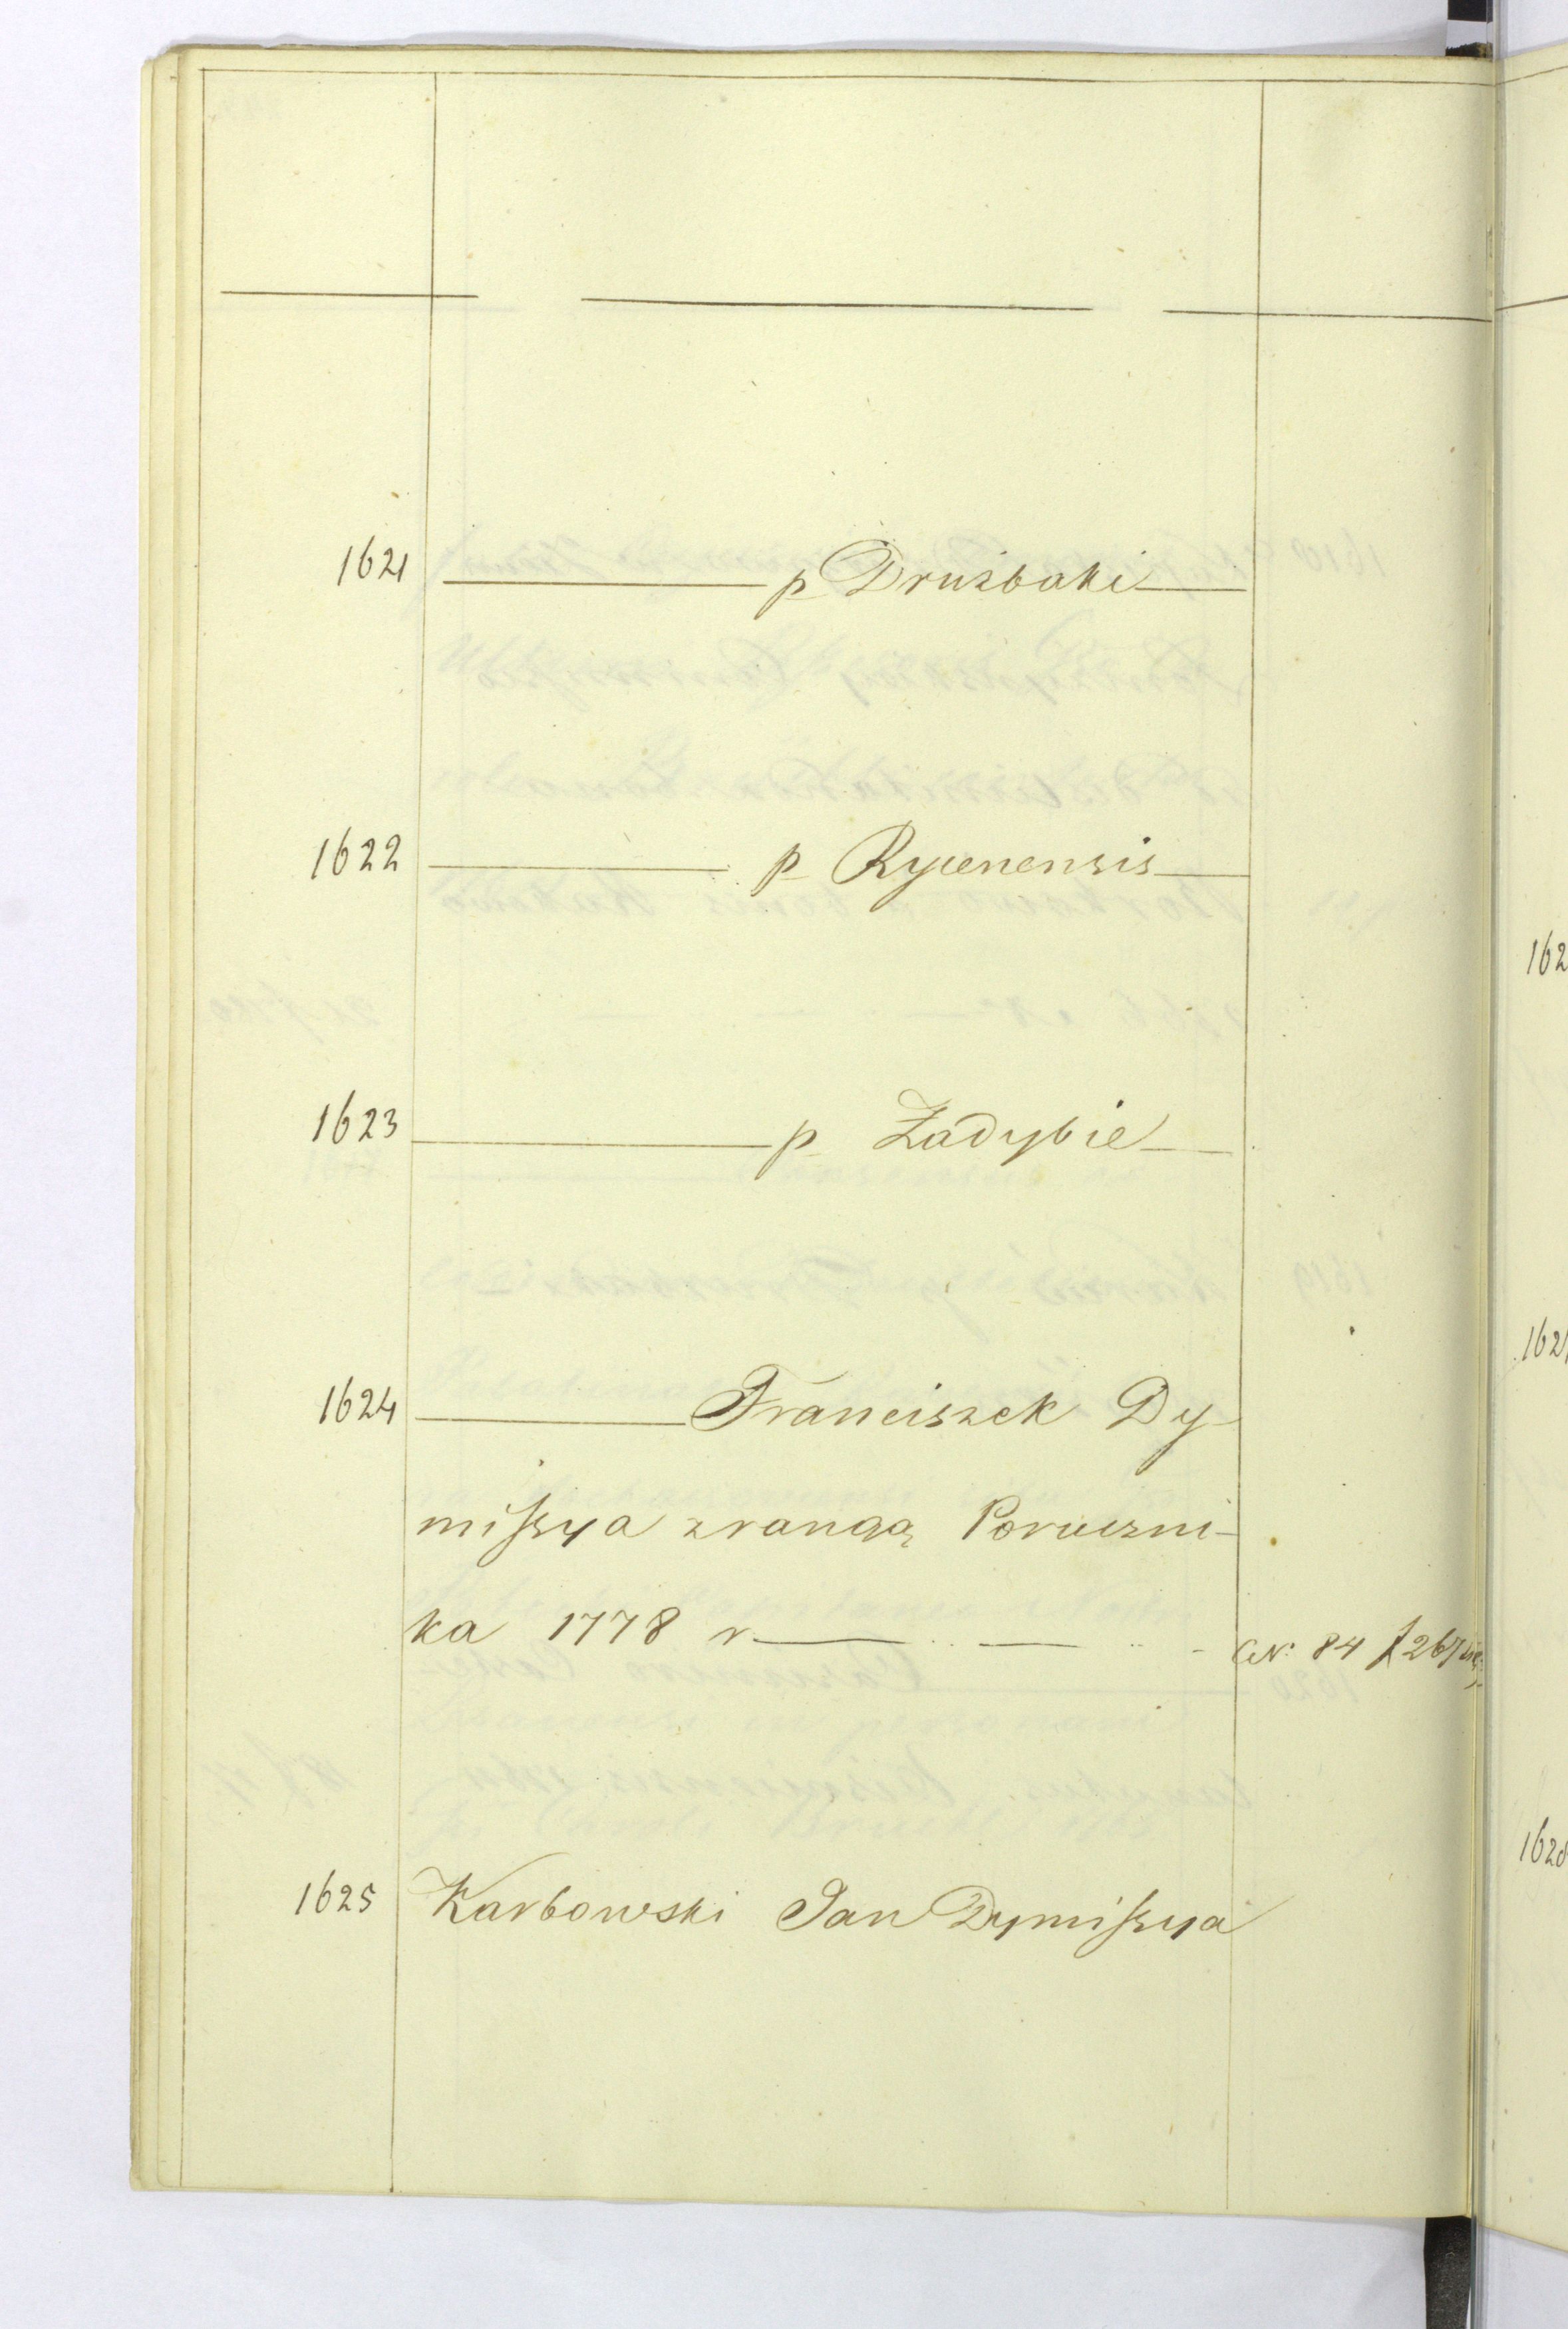 1621 p Drużbaki
1622 p Rycenensis
1623 p Zadybie
1624 Franciszek Dy
mißya z rangą Poruczni-
ka 1778 r № 84 f 267
1625 Karbowski Jan Dymißya
162
162
162